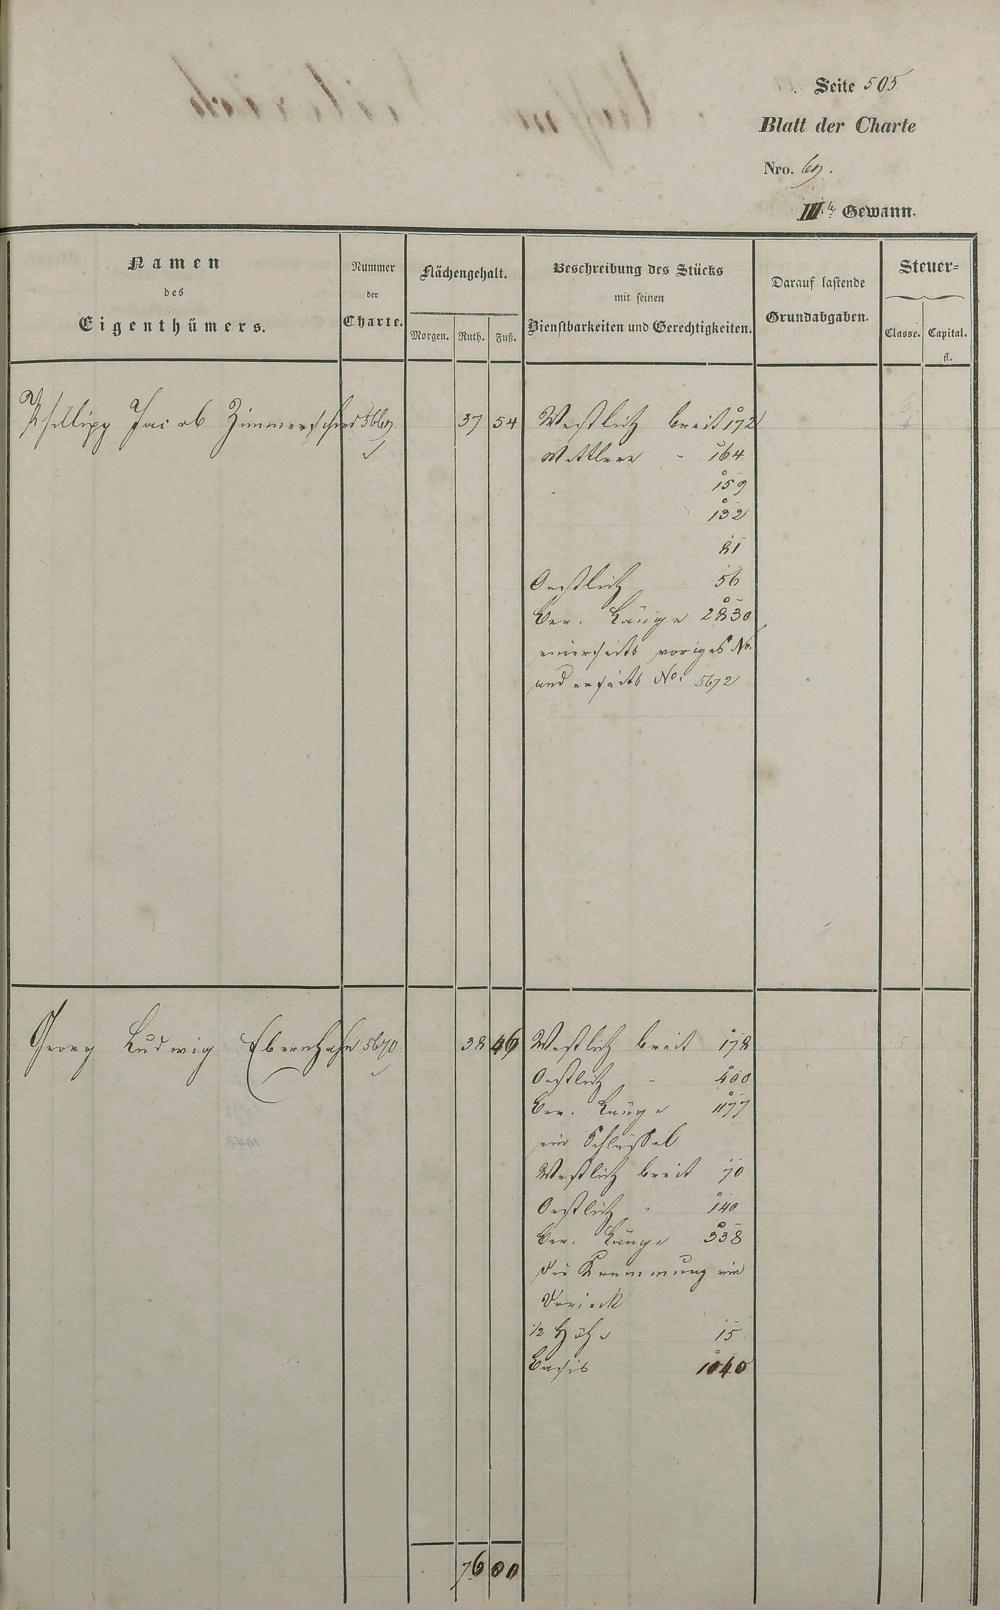 Seite 505
Blatt der Charte
Nro. 69.
III.te Gewann.
Namen
des
Eigenthümers.
Nummer
der
Charte.
Flächengehalt.
Morgen. Ruth. Fuß.
Beschreibung des Stücks
mit seinen
Dienstbarkeiten und Gerechtigkeiten.
Darauf lastende
Grundabgaben.
Steuer=
Classe. Capital.
fl.
Phillipp Jacob Zimmerschied 5669 37 54 Westlich breit 172
Mittlere - 164
159
132
81
Oestlich 56
Ber. Länge 2830
einerseits voriges No.
anderseits No. 5672
Georg Ludwig Ebernhahn 5670 38 46 Westlich breit 178
Oestlich - 400
Ber. Länge 1177
ein Schlüssel
Westlich breit 70
Oestlich - 140
Ber. Länge 338
die Krummung ein
Dreieck
1/2 Höhe 15
Basis 1040
76 00